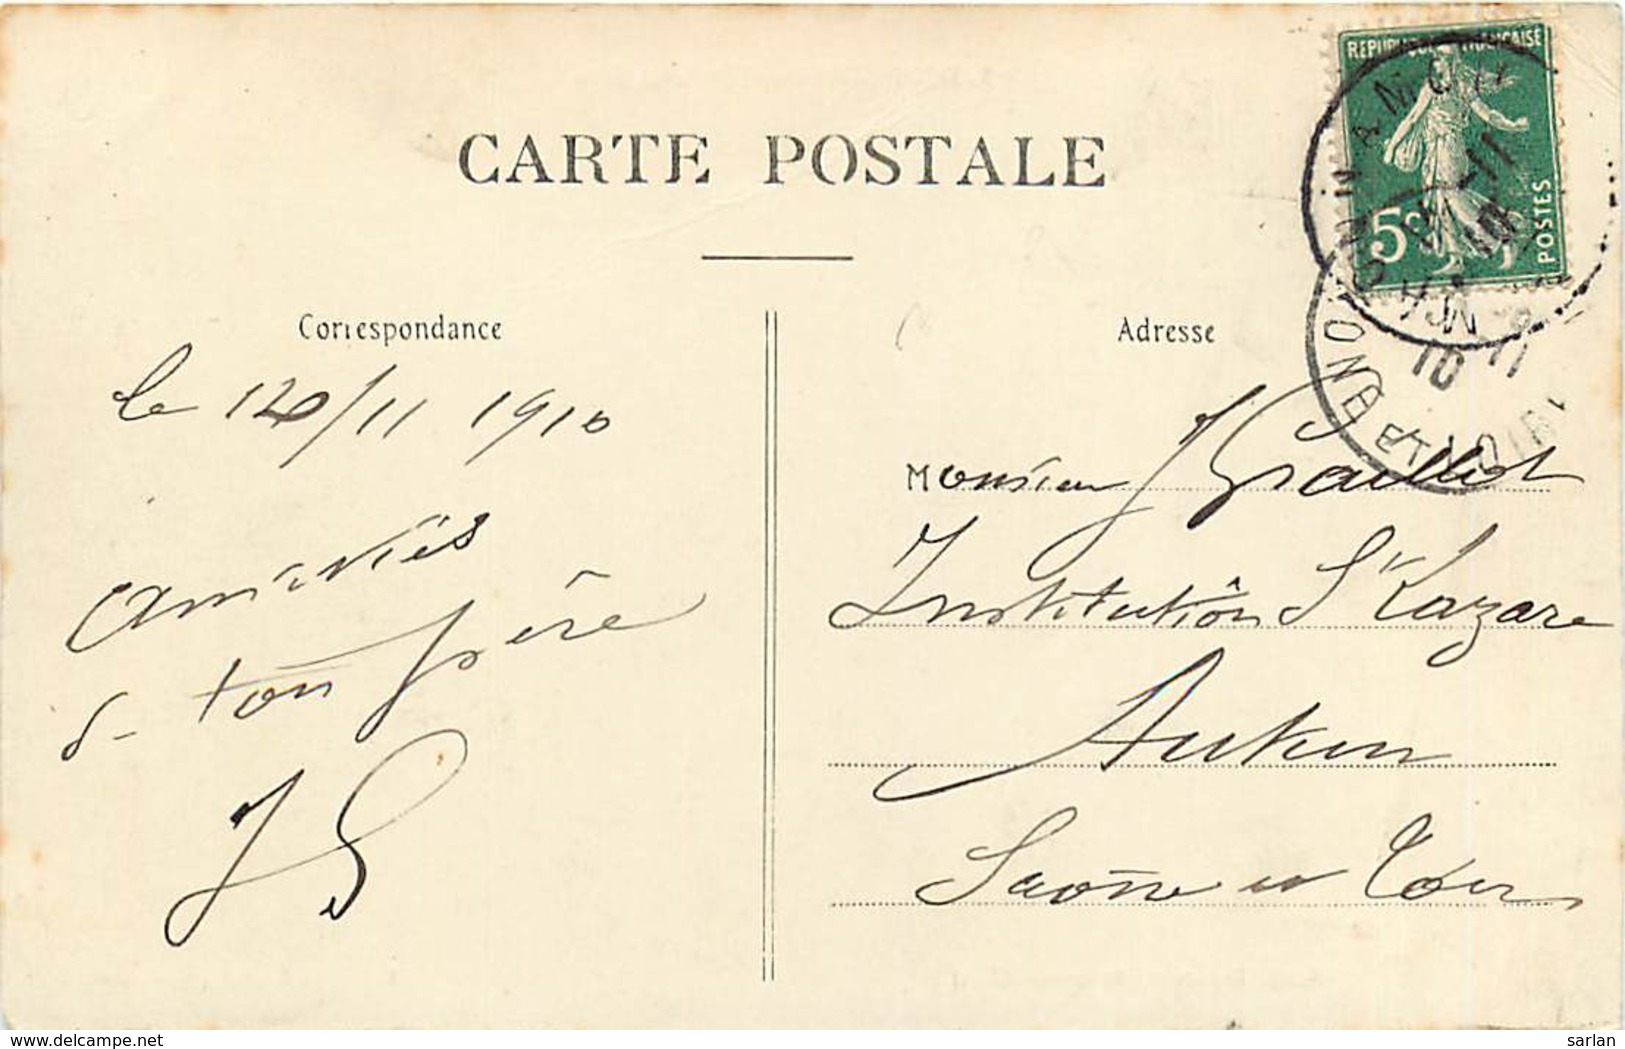 CARTE POSTALE
Correspondance
le 12/11 1910
Amitiés
de ton frère
JG
Adresse
Monsieur J Graillot
Institution St Lazare
Autun
Saône et Loire
REPUBLIQUE FRANÇAISE
5c
POSTES
SAONE ET LOIRE
11-11
10
delcampe.net
sarlan